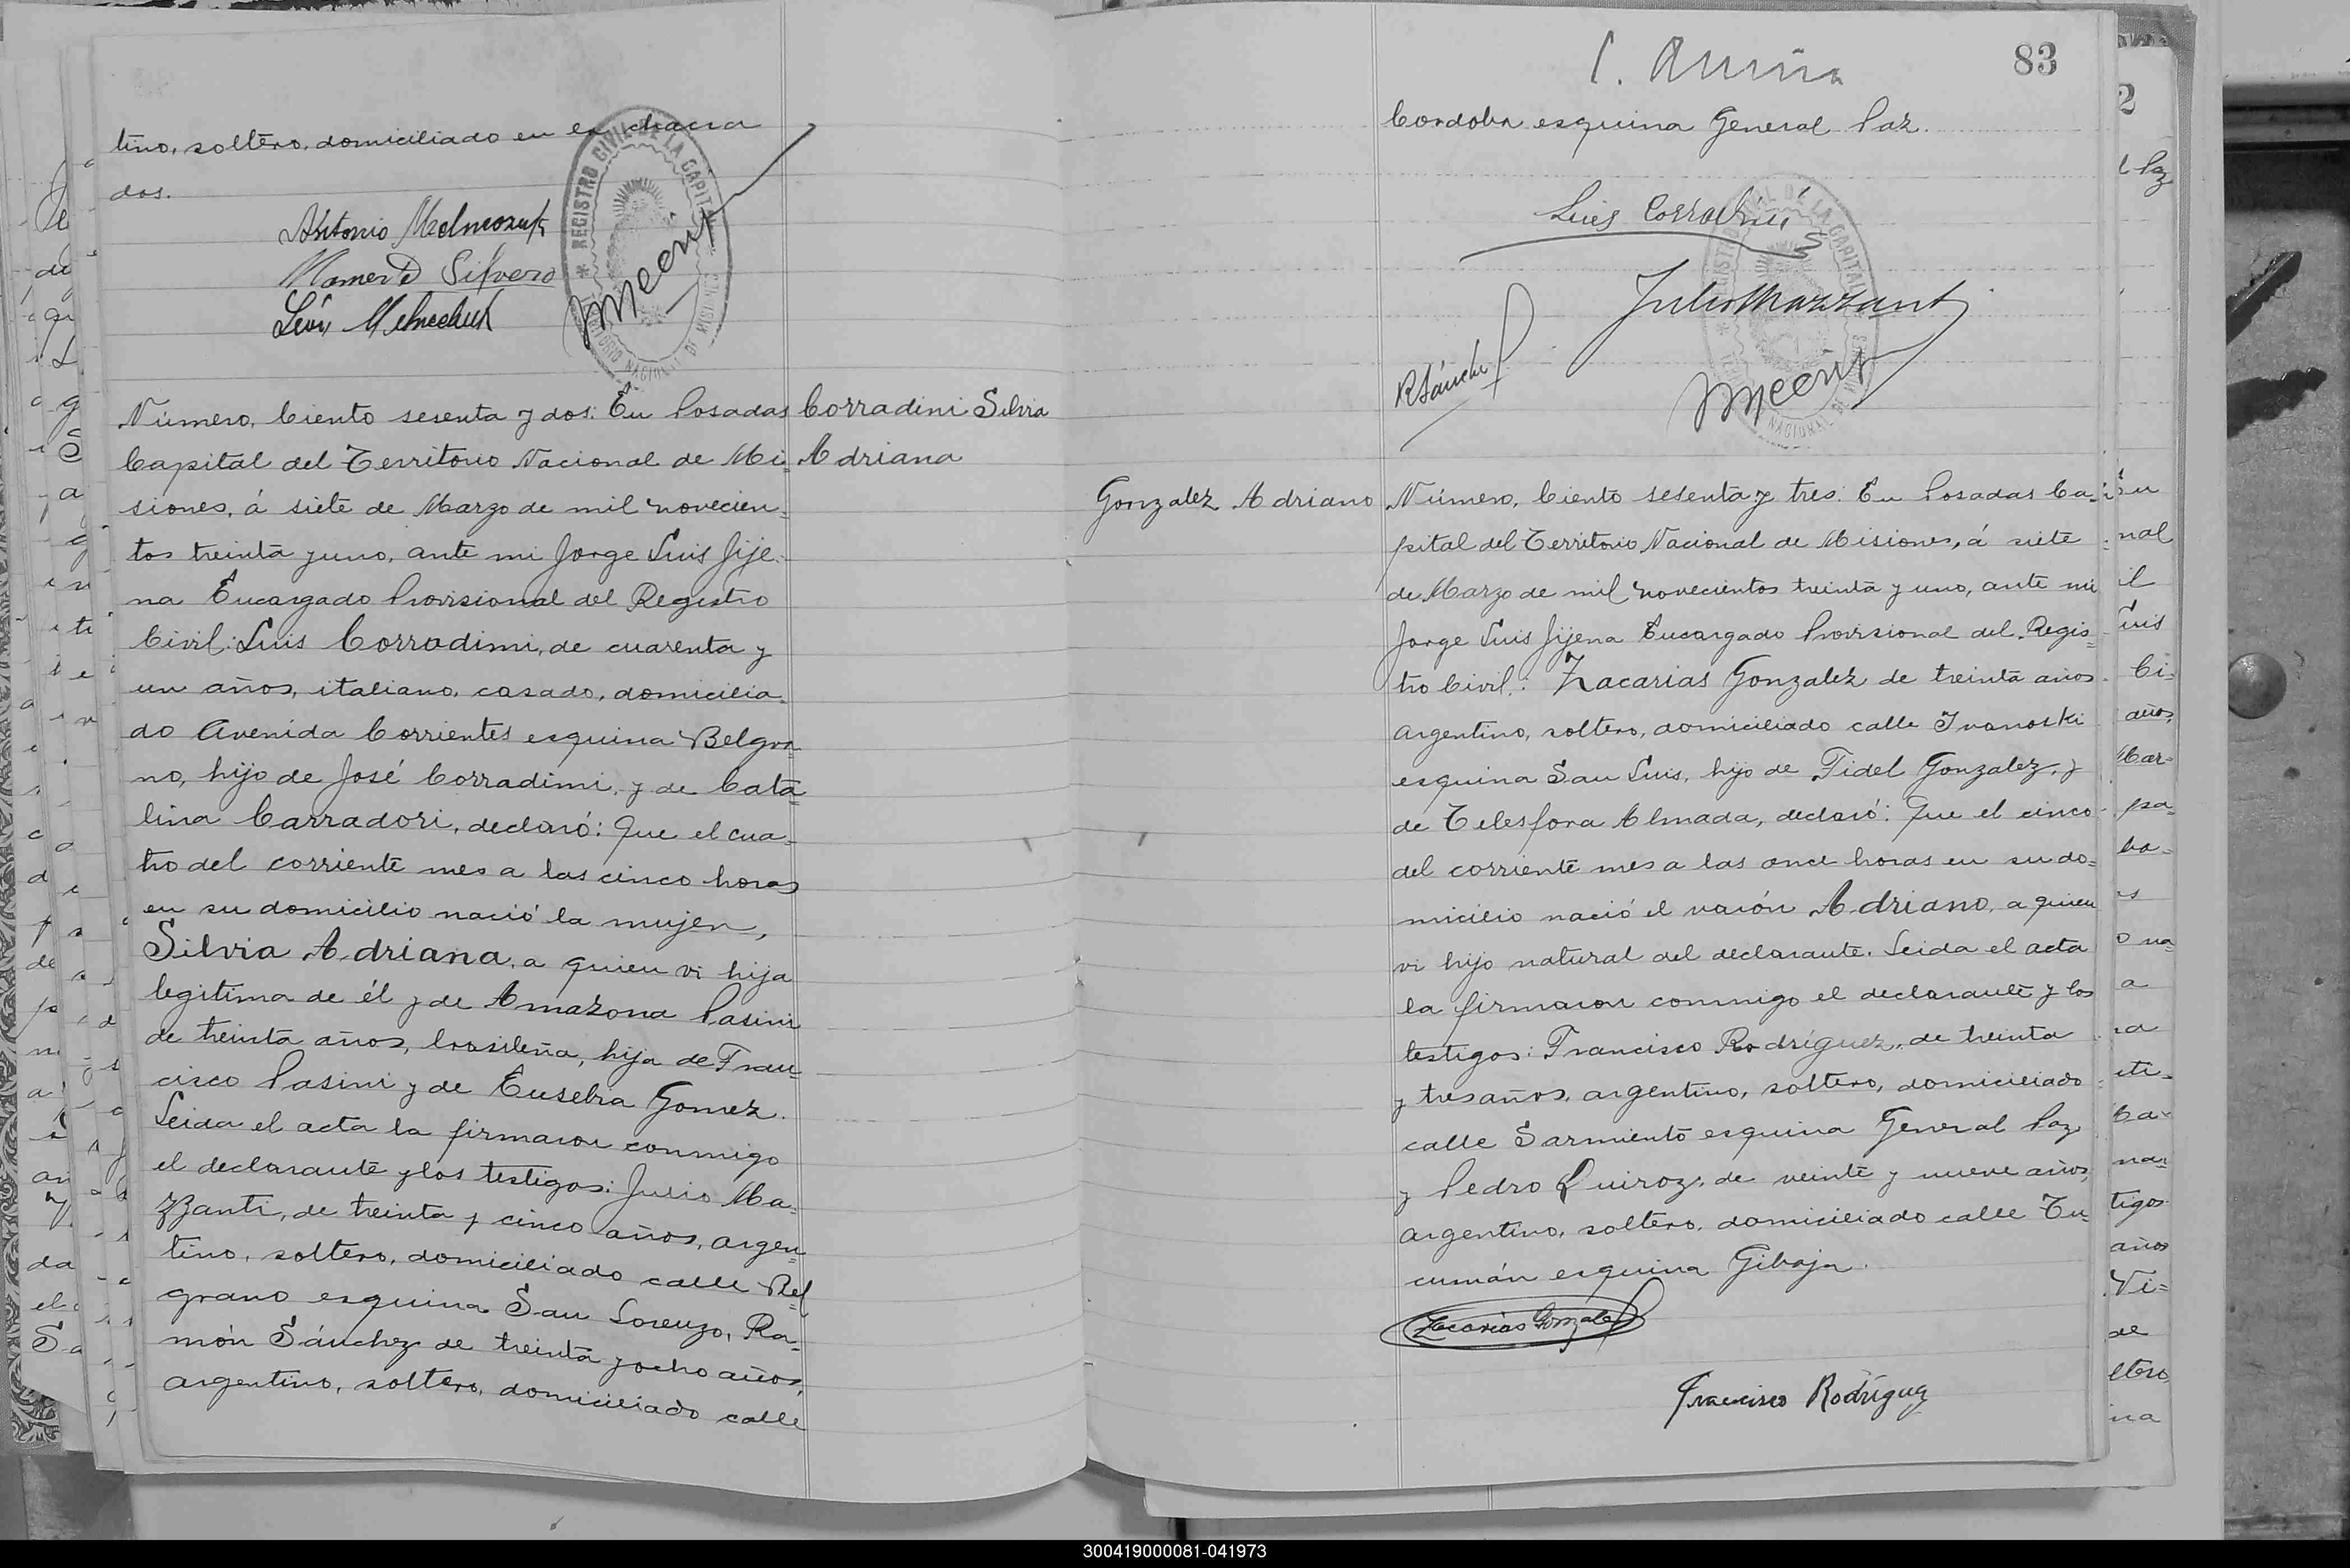 tino, soltero, domiciliado en la chacra
dos.
Antonio Melneczuk
Mamerto Silvero
León Melnechuk
REGISTRO CIVIL DE LA CAPITAL
TERRITORIO NACIONAL DE MISIONES
Número, Ciento sesenta y dos: En Posadas
Capital del Territorio Nacional de Mi=
siones, á siete de Marzo de mil novecien=
tos treinta y uno, ante mi Jorge Luis Jije=
na Encargado Provisional del Registro
Civil: Luis Corradini, de cuarenta y
un años, italiano, casado, domicilia=
do Avenida Corrientes esquina Belgra=
no, hijo de José Corradimi, y de Cata=
lina Carradori, declaró: Que el cua=
tro del corriente mes a las cinco horas
en su domicilio nació la mujer,
Silvia Adriana, a quien vi hija
legitima de él y de Amazona Pasini
de treinta años, brasileña, hija de Fran=
cisco Pasini y de Eusebia Gomez.
Leida el acta la firmaron conmigo
el declarante y los testigos: Julio Ma=
zzanti, de treinta y cinco años, argen=
tino, soltero, domiciliado calle Bel=
grano esquina San Lorenzo, Ra=
món Sánchez de treinta y ocho años,
argentino, soltero, domiciliado calle
Corradini Silvia
Adriana
83
Cordoba esquina General Paz.
Luis Corradini
Julio Mazzanti
R Sánchez
REGISTRO CIVIL DE LA CAPITAL
TERRITORIO NACIONAL DE MISIONES
Gonzalez Adriano
Número, Ciento sesenta y tres: En Posadas Ca=
pital del Territorio Nacional de Misiones, á siete
de Marzo de mil novecientos treinta y uno, ante mi
Jorge Luis Jijena Encargado Provisional del Regis=
tro Civil: Zacarias Gonzalez de treinta años
argentino, soltero, domiciliado calle Ivanoski
esquina San Luis, hijo de Fidel Gonzalez, y
de Telesfora Almada, declaró: Que el cinco
del corriente mes a las once horas en su do=
micilio nació el varón Adriano, a quien
vi hijo natural del declarante. Leida el acta
la firmaron conmigo el declarante y los
testigos: Francisco Rodríguez, de treinta
y tres años, argentino, soltero, domiciliado
calle Sarmiento esquina General Paz
y Pedro Quiroz, de veinte y nueve años,
argentino, soltero, domiciliado calle Tu=
cumán esquina Giboja.
Zacarias Gonzalez
Francisco Rodríguez
300419000081-041973